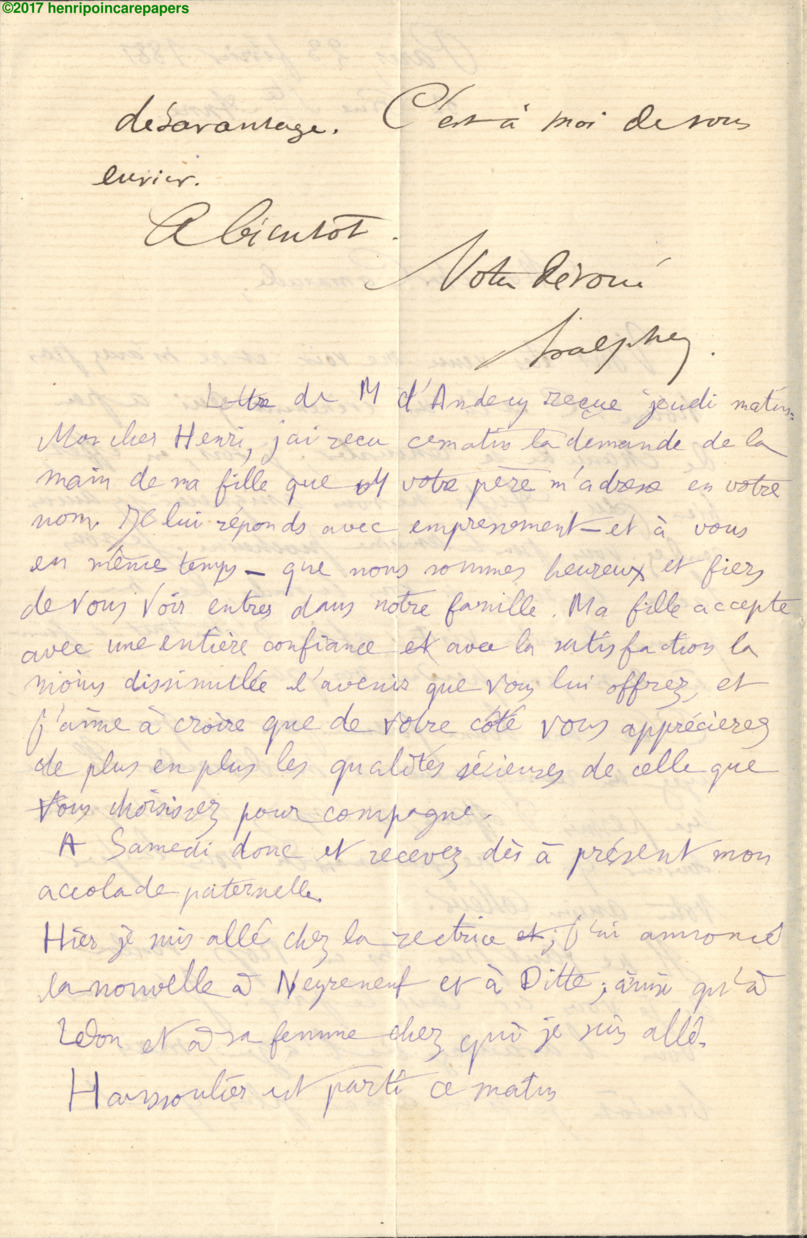 ©2017 henripoincarepapers
désavantage. C'est à moi de vous
envier.
A bientôt.
Votre dévoué
Halphen.
Lettre de M d'Andecy reçue jeudi matin.
Mon cher Henri, j'ai reçu ce matin la demande de la
main de ma fille que votre père m'adresse en votre
nom. Je lui réponds avec empressement – et à vous
en même temps – que nous sommes heureux et fiers
de vous voir entrer dans notre famille. Ma fille accepte
avec une entière confiance et avec la satisfaction la
moins dissimulée l'avenir que vous lui offrez, et
j'aime à croire que de votre côté vous apprécierez
de plus en plus les qualités sérieuses de celle que
vous choisissez pour compagne.
A Samedi donc et recevez dès à présent mon
accolade paternelle.
Hier je suis allé chez la rectrice et; j'ai annoncé
la nouvelle à Neyreneuf et à Ditte; ainsi qu'à
et à sa femme chez qui je suis allé.
Haussoulier est parti ce matin